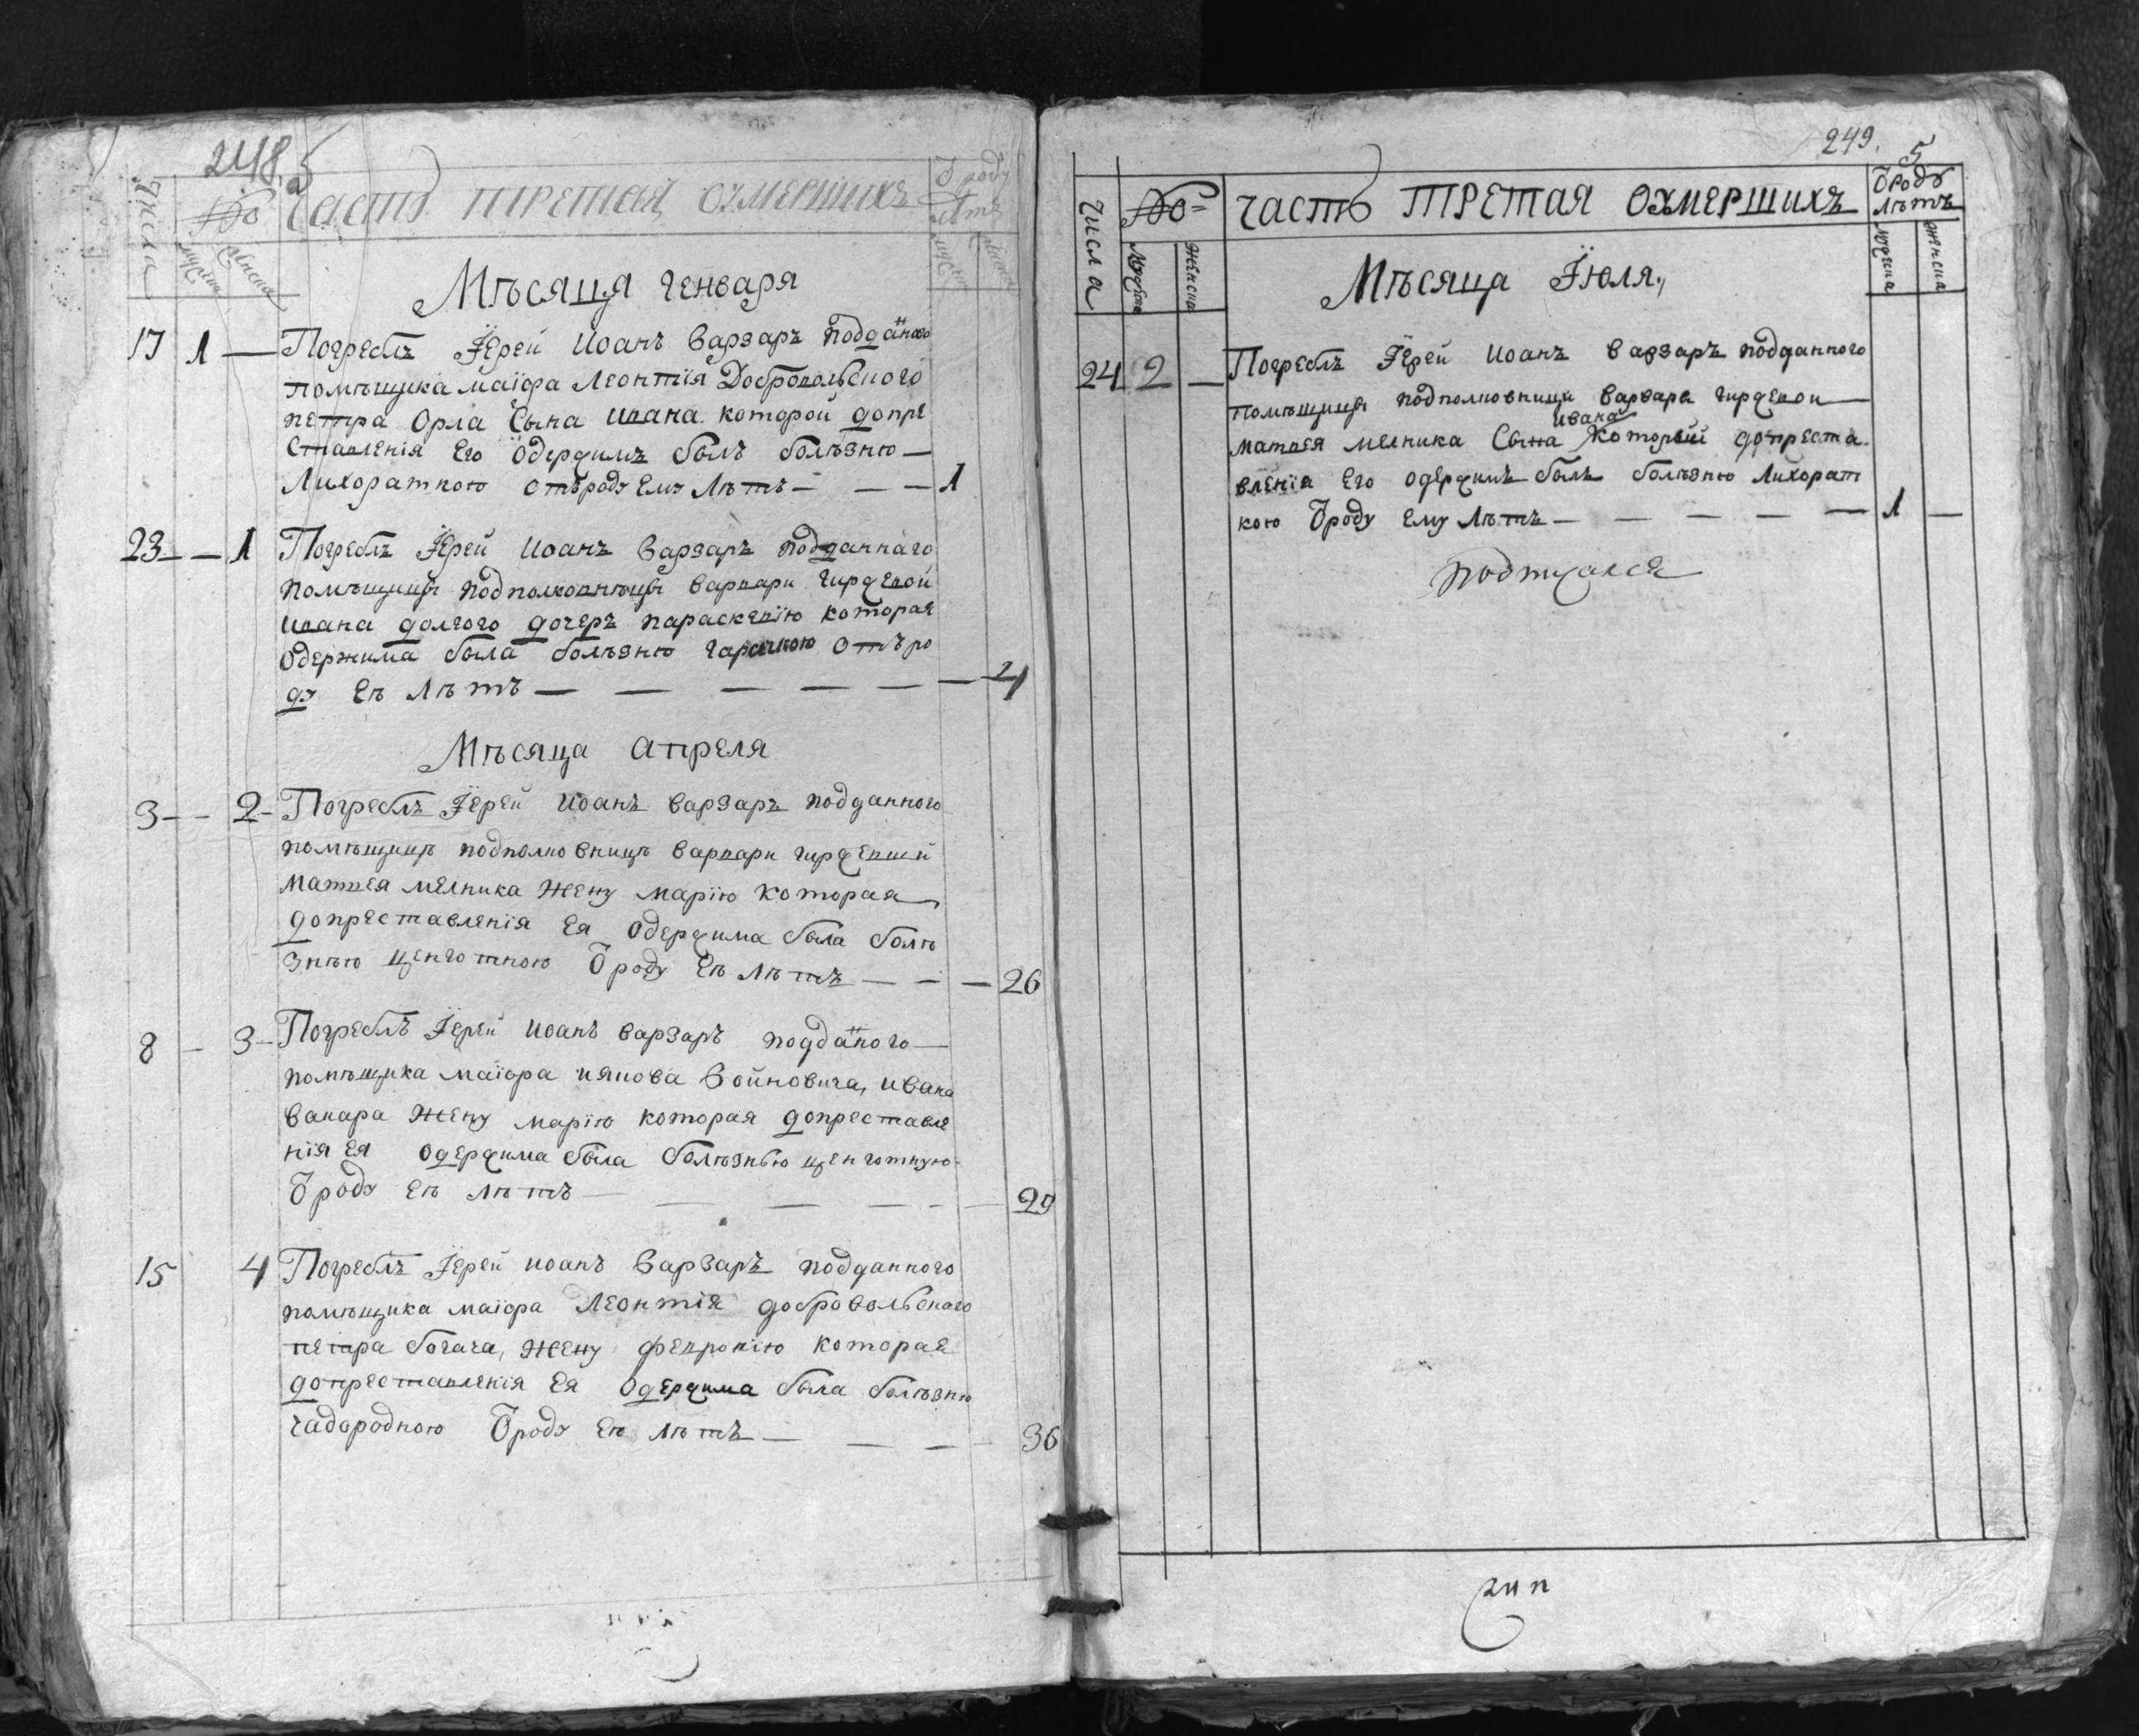 248.
5
Числа
Часть третая оумершихъ
Ѿ роду
лѣтъ
мужеска
женска
Мѣсяця генваря
17 1 — Погреблъ Їерей Иоанъ Варзаръ подданого
помѣщика маїора Леонтїя Добровольского
петра Орла Сына ивана которой допре
ставленїя Его Одержимъ былъ болѣзню —
Лихораткою отъроду Ему Лѣтъ — — — 1
23 — — 1 Погреблъ Їерей Иоанъ Варзаръ подданнаго
помѣщицѣ подполковницѣ варвари гиржевой
ивана долгого дочеръ параскевїю которая
Одержима была болѣзню гарачкою отъро
ду Еѣ Лѣтъ — — — — — — 4
Мѣсяца априля
3 — — 2 — Погреблъ Їерей Иоанъ Варзаръ подданного
помѣщицѣ подполковницѣ варвари гиржевой
Матвея мелника жену марїю которая
допреставленїя Ея Одержима была болѣ
знѣю ценготною Ѿ роду Еѣ лѣтъ — — — 26
8 — 3 — Погреблъ Їерей Иоанъ варзаръ подданого —
помѣщика маїора Войновича, ивана
вакара жену марїю которая допреставле
нїя Ея одержима была болѣзнью ценготную
Ѿ роду Еѣ лѣтъ — — — — — 29
15 4 Погреблъ Їерей иоанъ Варзаръ подданного
помѣщика маїора Леонтїя добровольскаго
петра богача, жену февронїю которая
допреставленїя Ея Одержима была болѣзню
чадородною Ѿ роду Еѣ лѣтъ — — — — 36
249.
5
Числа
часть третая оумершихъ
Ѿ роду
лѣтъ
мужеска
женска
мужеска
женска
Мѣсяца Їюля
24 2 — Погреблъ Їерей Иоанъ Варзаръ подданного
помѣщици подполковници варвари гиржевои —
ивана
матвея мелника Сына который допреста
вленїя Его одержимъ былъ болѣзню лихорат
кою Ѿ роду Ему лѣтъ — — — — — 1 —